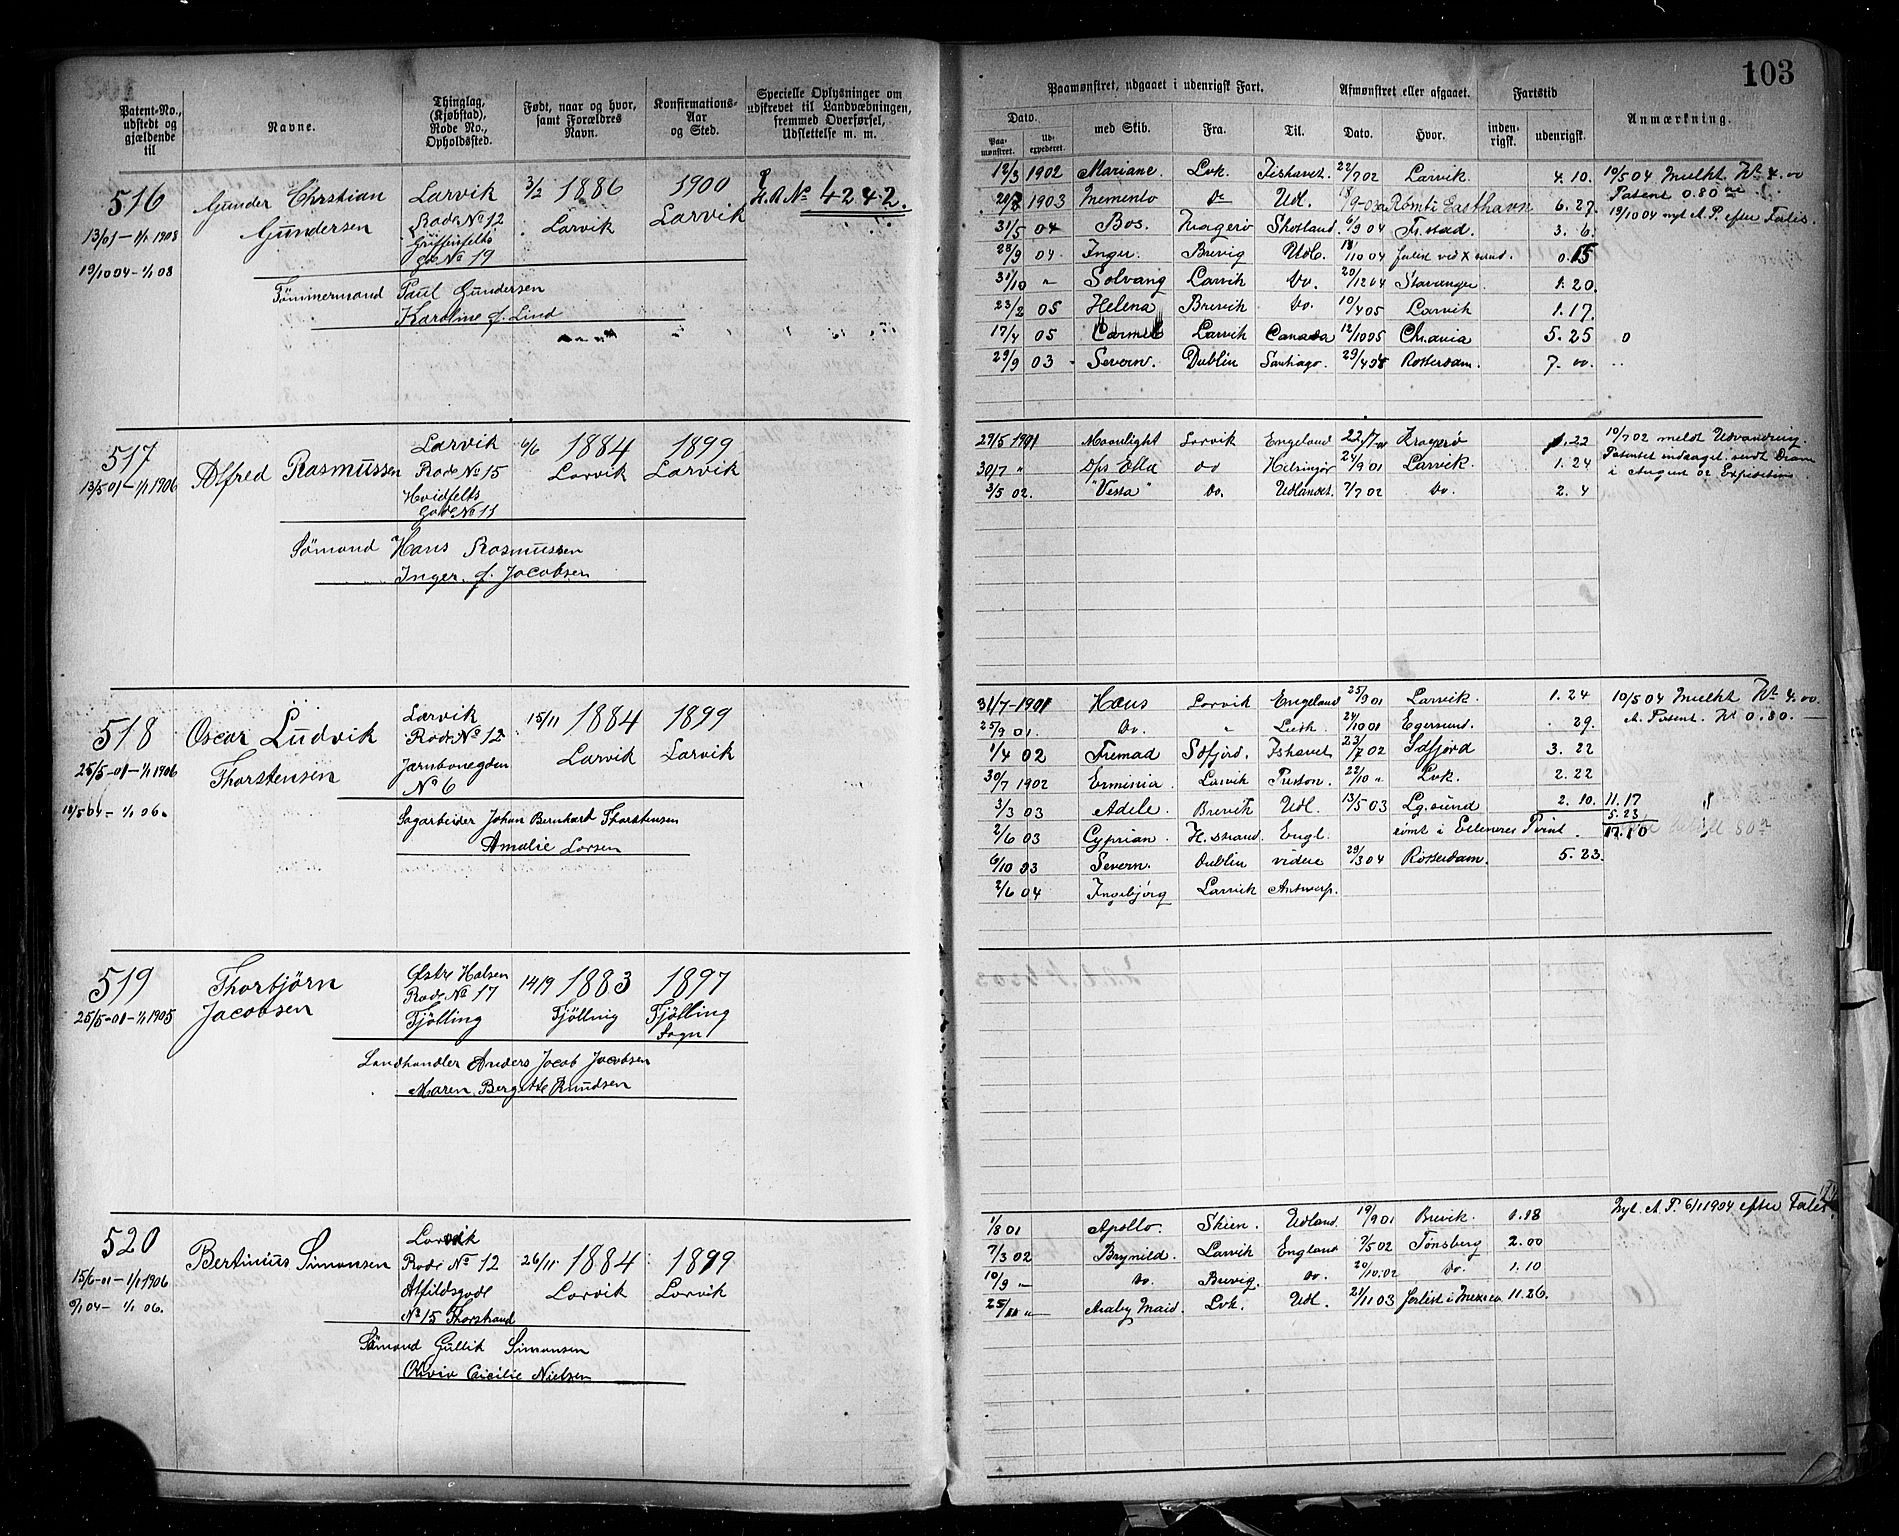 103
Patent-No., udstedt og gjældende til
Navne.
Thinglag, (Kjøbstad), Rode No., Opholdssted.
Født, naar og hvor, samt Forældres Navn.
Konfirmations-Aar og Sted.
Specielle Oplysninger om udskrevet til Landværbningen, fremmed Overførsel, Udslettelse m. m.
Paamønstret, udgaaet i udenrigsk Fart.
Afmønstret eller afgaaet.
Fartstid
Anmærkning.
Dato.
Paa-mønstret.
Ud-expederet.
med Skib.
Fra.
Til.
Dato.
Hvor.
inden-rigsk.
udenrigsk.
516 Gunder Chrstian Larvik 3/2 1886 1900 H.R No 4242.
13/01 - 1/1 1908 Gundersen Rode No 12 Larvik Larvik
Griffenfelts
19/10 04 - 1/1 08 Gd No 19
Tømmermand Paul Gundersen
Karoline f. Lind
12/3 1902 Mariane. Lvk. Fishavet 22/7 02 Larvik. 4. 10. 10/5 04 Mulkt Kr 4.00
1903 Memento Do Udl. Easthavn 6. 27. Patent 0.80
31/5 04 Bos. Kragerø Shotland. 6/9 04 Fr.stad. 3. 6. 19/10 04 nyt A. P. efter Falis.
28/9 04. Inger. Brevig Udl. 18/10 04 forlist ved X sand. 0. 15
31/10 " Solvang Larvik Do. 20/12 04 Stavanger 1. 20.
23/2 05 Helena Brevik Do. 10/4 05 Larvik 1. 17.
17/4 05 Carmel Larvik Canada 12/10 05 Chr.ania 5. 25 0
29/9 03 Severn. Dublin Santiago. Rotterdam. 7. 00.
517 Alfred Rasmussen Larvik 6/6 1884 1899
13/5-01 - 1/1 1906 Rode No 15 Larvik Larvik
Hvidfelts
Gade No 11
Sømand Hans Rasmussen
Inger. f. Jacobsen
29/5 1901 Moonlight Larvik Engeland 22/7 Kragerø 1. 22 10/7 02 meldt Udvandring
30/7 " D/s Ella Do Helsingør 24/9 01 Larvik. 1. 24 Patentet inddraget sendt Dram
3/5 02. "Vesta" Do. Udlandet. 7/7 02 Do. 2. 4 i August 02 Expedition
518 Oscar Ludvik Larvik 15/11 1884 1899
25/5-01 - 1/1 1906 Thorstensen Rode No 12 Larvik Larvik
Jernbanegden
10/5 04 - 1/1 06. No 6
Sagarbeider Johan Bernhard Thorstensen
Amalie Larsen
31/7-1901 Hans Larvik Engeland 25/9 01 Larvik. 1. 24 10/5 04 Mulkt Kr 4.00
25/9 01. Do. " Leith 24/10 01 Egersund. . 29. A. Patent. Kr 0.80. —
1/4 02 Fremad S.dfjord. Ishavet 23/7 02 S.dfjord 3. 22
30/7 1902 Erminia Larvik Preston. 22/10 " Lvk. 2. 22
3/3 03 Adele. Brevik Udl. 13/5 03 Lg.sund 2. 10. 11.17
5.23
2/6 03 Cyprian. H.strand. Engl. rømt i Port. 17.10
6/10 03 Severn. Dublin videre 29/3 04 Rotterdam. 5. 23.
2/6 04 Ingebjørg Larvik Antwerp.
519 Thorbjørn Østre Halsen 14/9 1883 1897
25/5-01 - 1/1 1905 Jacobsen Rode No 17 Tjølling Tjølling
Tjølling Sogn
Landhandler Anders Jacob Jacobsen
Maren Bergitte Knudsen
520 Bertinius Simonsen Larvik 26/11. 1884 1899
15/6-01 - 1/1 1906 Rode No 12 Larvik Larvik
Alfildsgade
04 - 1/1 06. No 15 Thorstrand
Sømand Gullik Simonsen
Olivia Cicilie Nielsen
Nyt A. P. 6/1 1904 efter Falis.
1/8 01 Apollo. Skien. Udland. 19/9 01 Brevik. 1.18
7/3 02 Brynild. Larvik England 7/5 02 Tønsberg 2.00
10/9 " Do. Brevig. Do. 20/10.02 Do. 1.10
25/11 " Araby Maid. Lvk. Udl. 21/11 03 forlist i Mexico. 11.26.